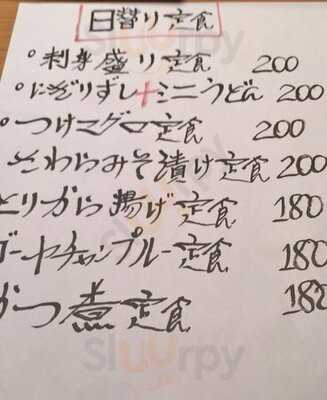 日替り定食
○刺身盛り定食 200
○にぎりずし+ミニうどん 200
○つけマグロ定食 200
さわらみそ漬け定食 200
とりから揚げ定食 180
ゴーヤチャンプルー定食 180
かつ煮定食 180
Sluurpy